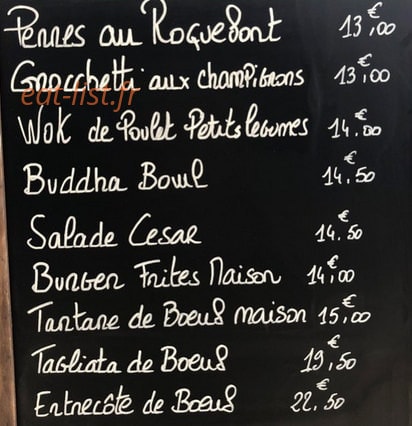 Pennes au Roquefort 13,00 €
Gnocchetti aux champignons 13,00 €
eat-list.fr
Wok de Poulet Petits legumes 14.00 €
Buddha Bowl 14.50 €
Salade Cesar 14.50 €
Burger Frites Maison 14,00 €
Tartare de Boeuf maison 15,00 €
Tagliata de Boeuf 19,50 €
Entrecôte de Boeuf 22.50 €